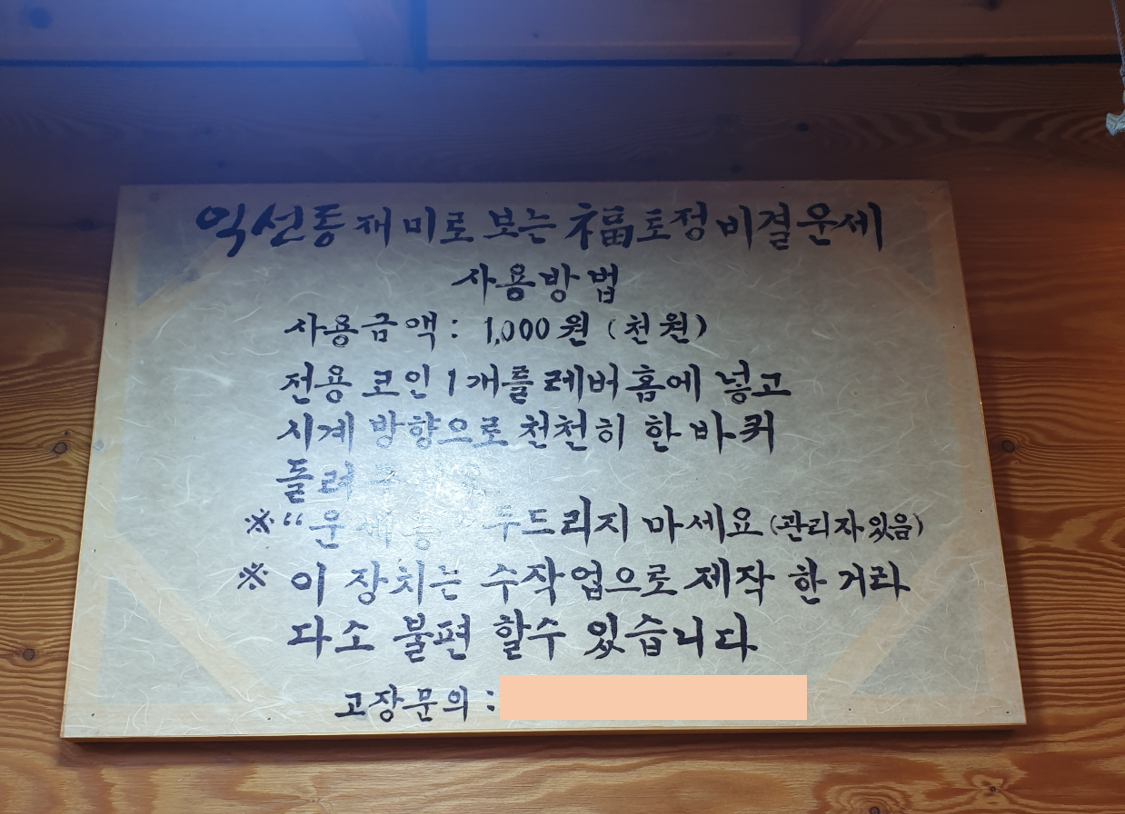 익선동 재미로 보는 福토정비결운세
사용방법
사용금액: 1,000원 (천원)
전용 코인 1개를 레버홈에 넣고
시계 방향으로 천천히 한바퀴
돌려
※ "운세통" 두드리지 마세요 (관리자있음)
※ 이 장치는 수작업으로 제작 한 거라
다소 불편 할수 있습니다
고장문의 :